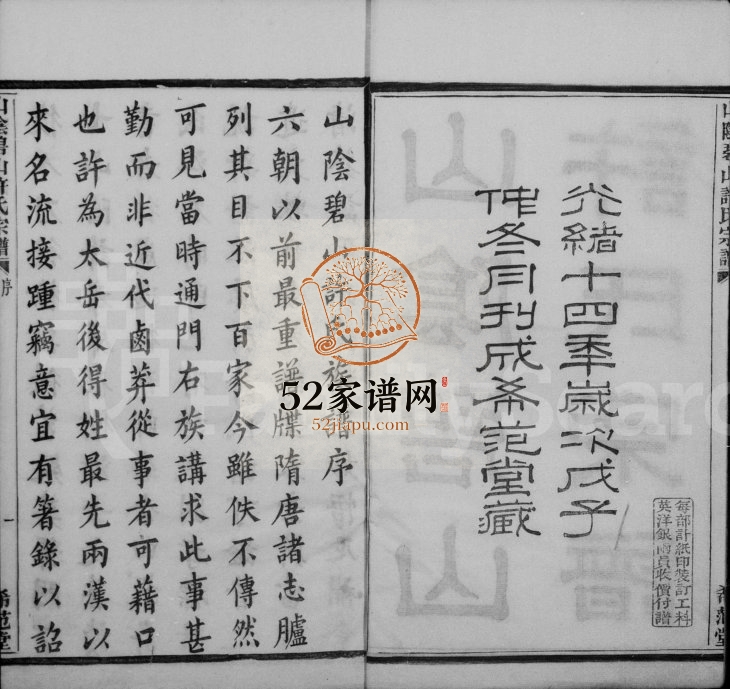 山陰碧山許氏宗譜
光緒十四年歲次戊子
仲冬月刊成希范堂藏
每部計紙印裝訂工料
英洋銀兩員收價付譜
希范堂
山陰碧山許氏族譜序
六朝以前最重譜牒隋唐諸志臚
列其目不下百家今雖佚不傳然
可見當時通門右族講求此事甚
勤而非近代鹵莽從事者可藉口
也許為太岳後得姓最先兩漢以
來名流接踵竊意宜有箸錄以詔
山陰碧山許氏宗譜
序
一
希范堂
52家谱网
52jiapu.com